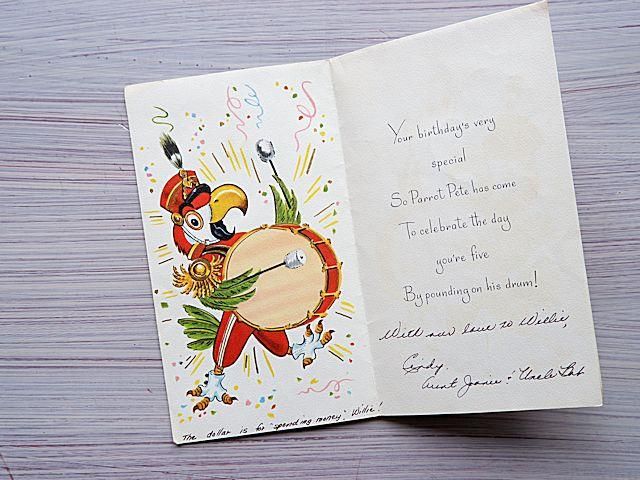 The dollar is for "spending money", Willie!
Your birthday's very
special
So Parrot Pete has come
To celebrate the day
you're five
By pounding on his drum!
With our love to Willie,
Cindy,
Aunt Janie & Uncle Bob